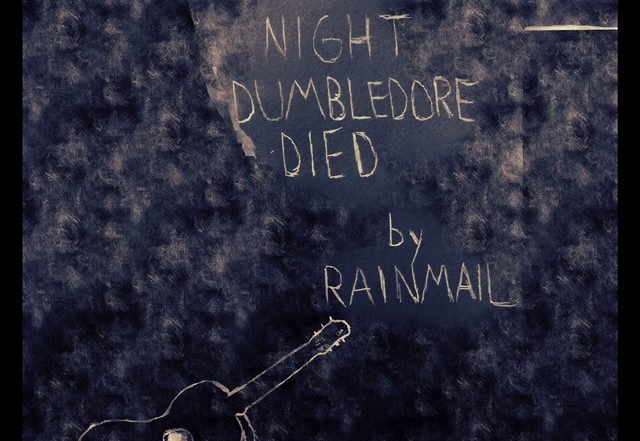 NIGHT
DUMBLEDORE
DIED
by
RAINMAIL